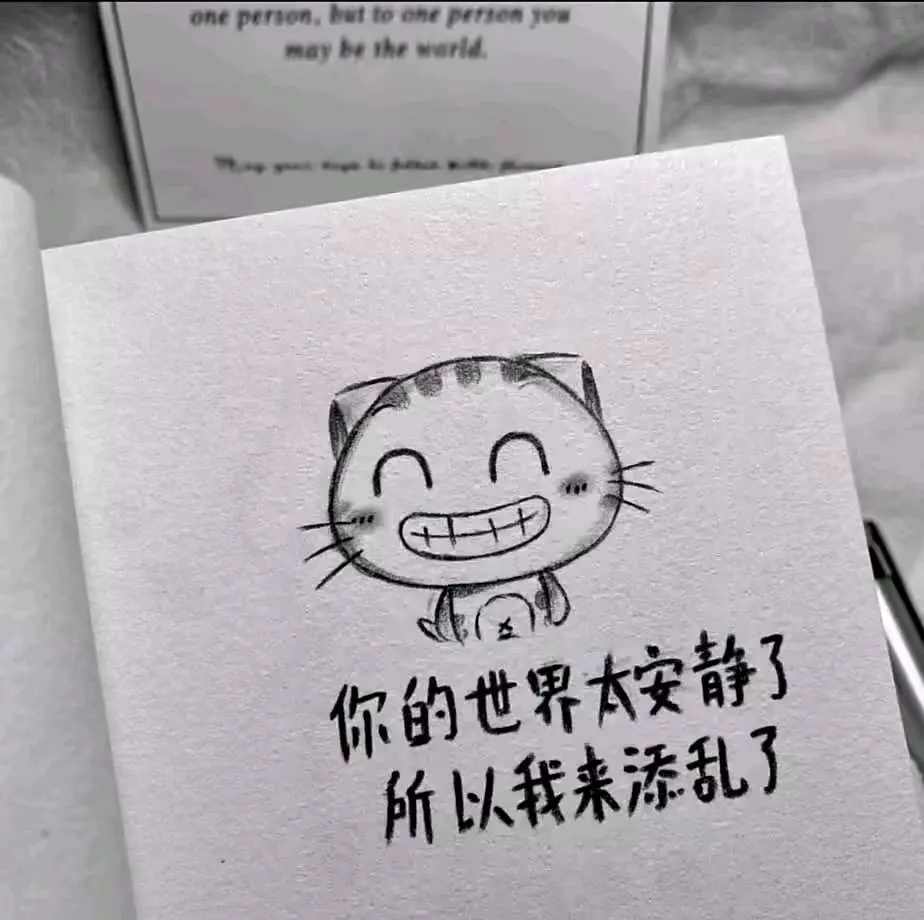 one person, but to one person you
may be the world.
你的世界太安静了
所以我来添乱了